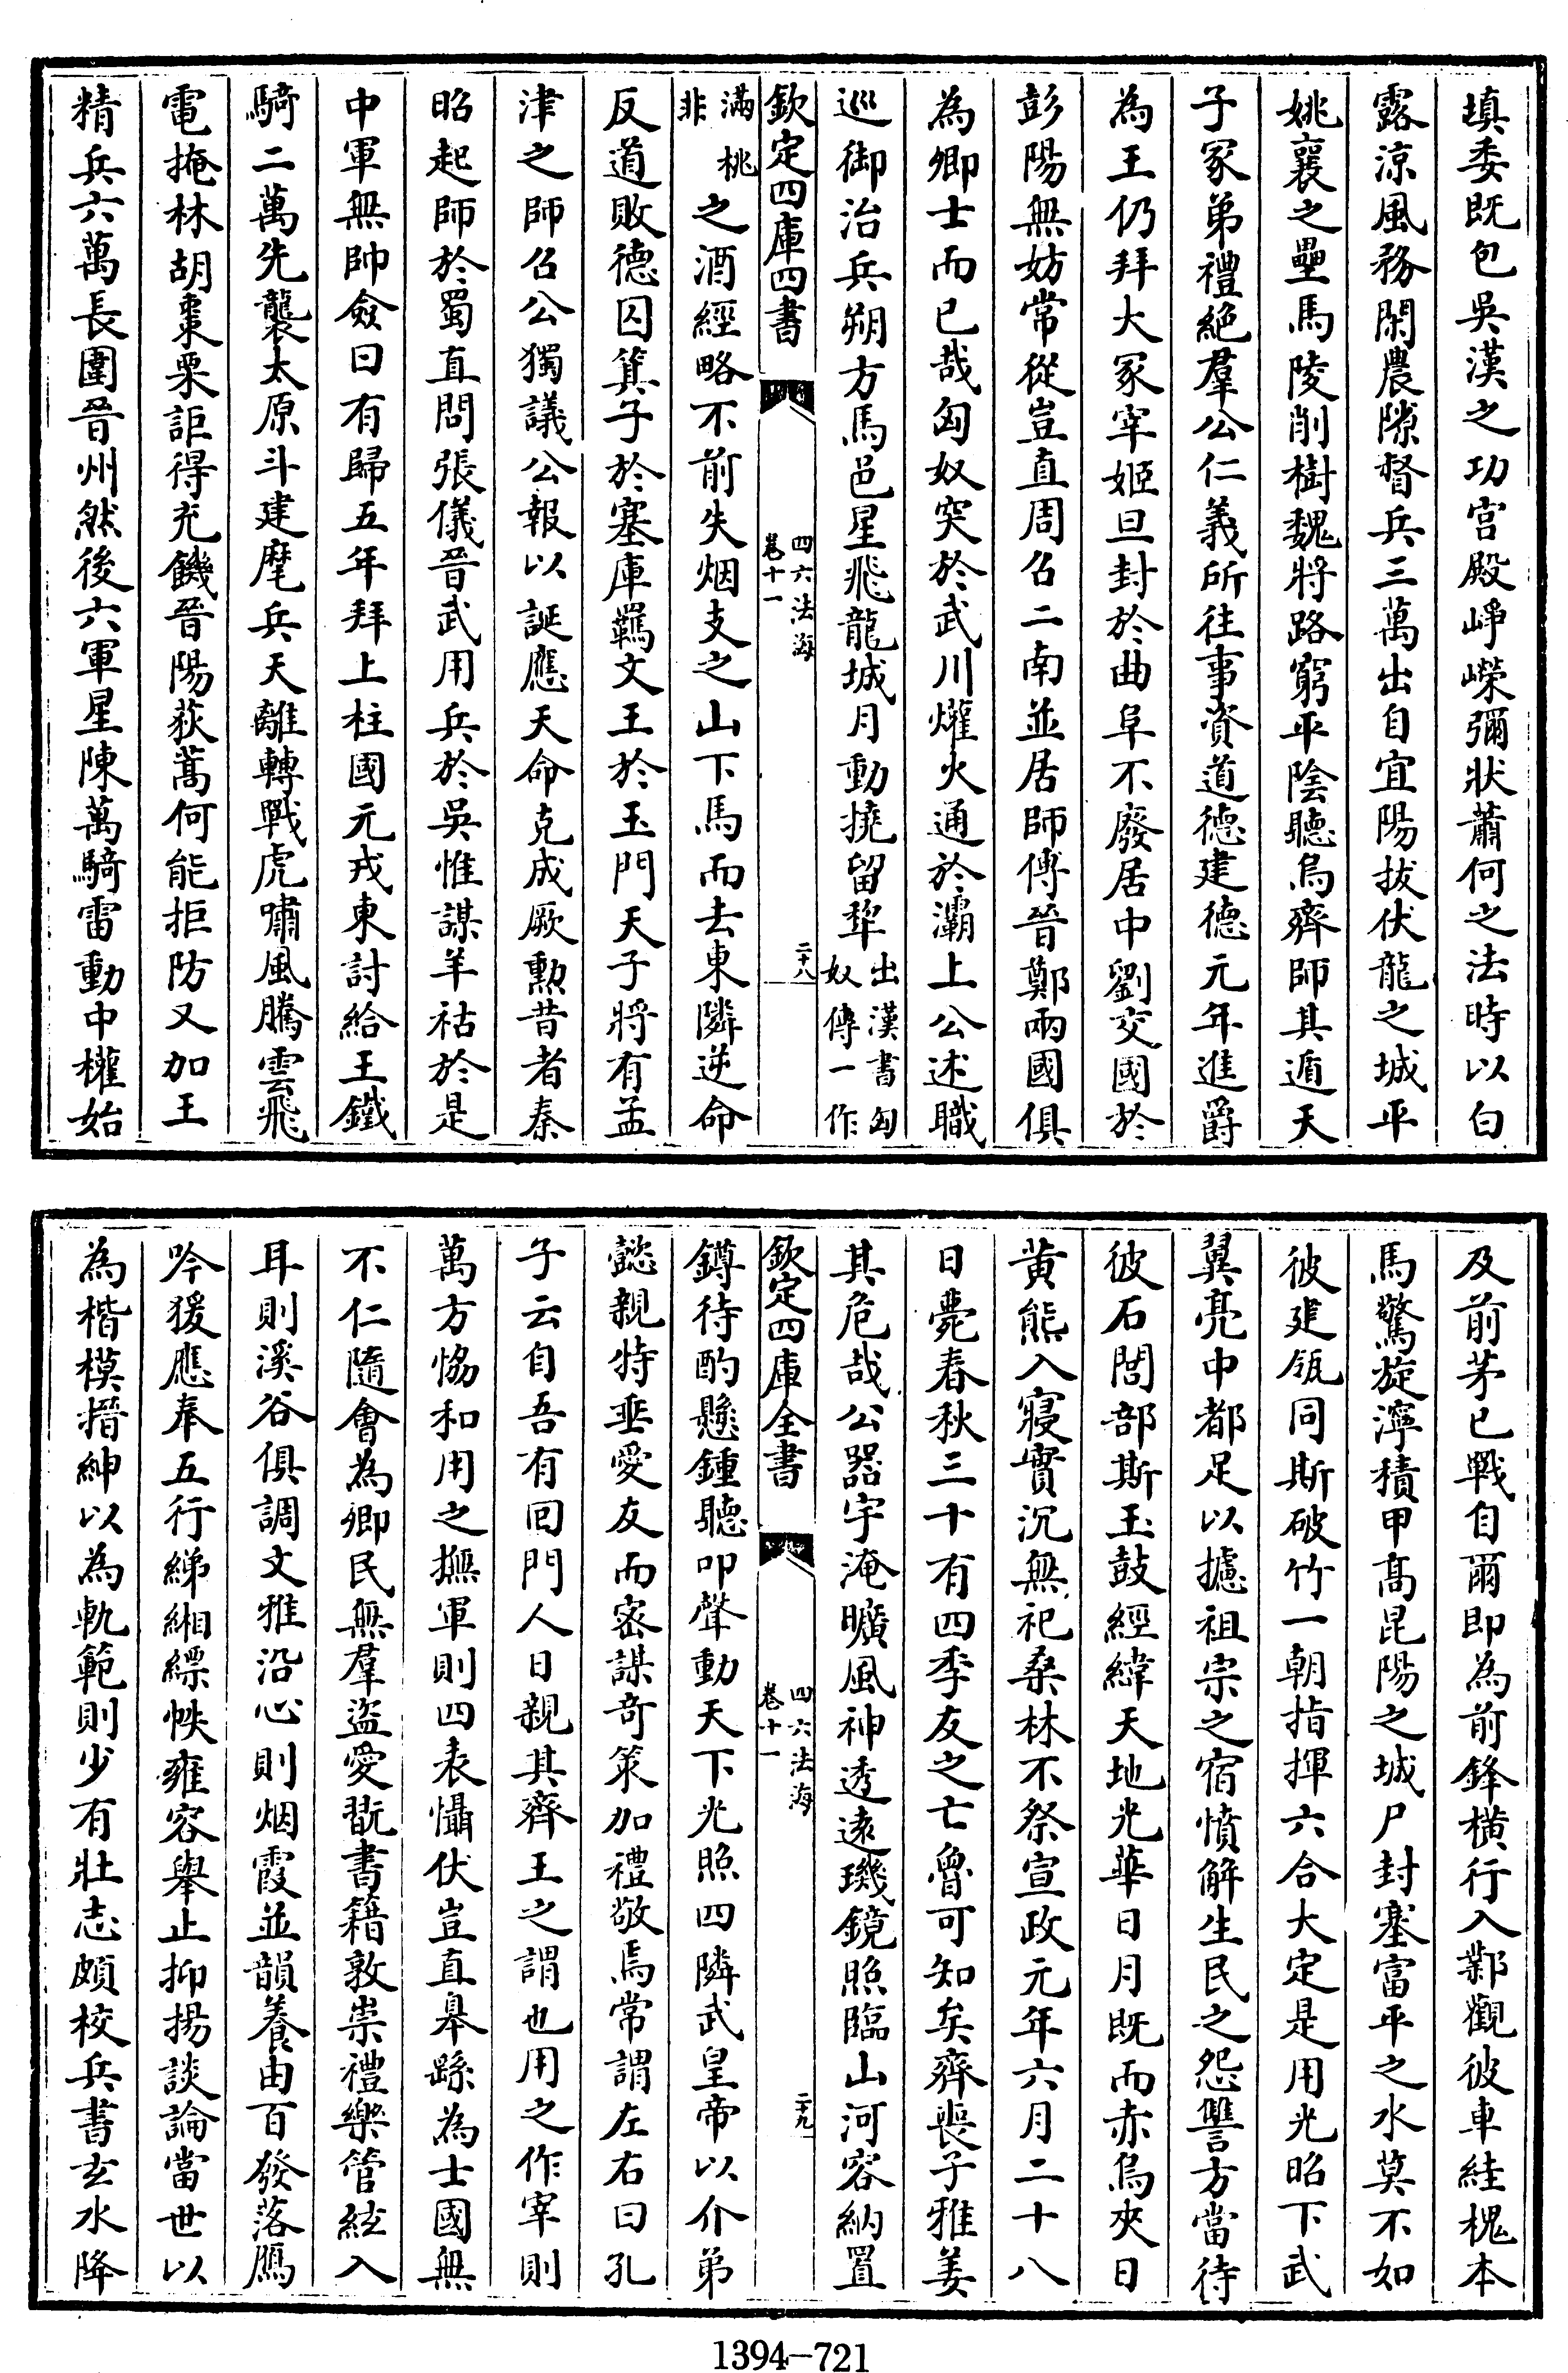 填委既包吳漢之功宫殿崢嶸彌狀蕭何之法時以白
露涼風務閑農隙督兵三萬出自宜陽拔伏龍之城平
姚襄之壘馬陵削樹魏將路窮平陰聽烏齊師其遁天
子冢弟禮絶羣公仁義所往事資道德建德元年進爵
為王仍拜大冢宰姬旦封於曲阜不廢居中劉交國於
彭陽無妨常從豈直周召二南並居師傅晉鄭兩國俱
為卿士而已哉匈奴突於武川爟火通於灞上公述職
巡御治兵朔方馬邑星飛龍城月動撓留犂出漢書匈奴傳一作
欽定四庫四書
四六法海
卷十一
二十八
滿桃非之酒經略不前失烟支之山下馬而去東隣逆命
反道敗德囚箕子於塞庫羈文王於玉門天子將有孟
津之師召公獨議公報以誕應天命克成厥勲昔者秦
昭起師於蜀直問張儀晉武用兵於吳惟謀羊祜於是
中軍無帥僉曰有歸五年拜上柱國元戎東討給王鐵
騎二萬先襲太原斗建麾兵天離轉戰虎嘯風騰雲飛
電掩林胡棗栗詎得充饑晉陽荻蒿何能拒防又加王
精兵六萬長圍晉州然後六軍星陳萬騎雷動中權始
及前茅已戰自爾即為前鋒横行入鄴觀彼車絓槐本
馬驚旋濘積甲髙昆陽之城尸封塞富平之水莫不如
彼建瓴同斯破竹一朝指揮六合大定是用光昭下武
翼亮中都足以攄祖宗之宿憤解生民之怨讐方當待
彼石閭部斯玉鼓經緯天地光華日月既而赤烏夾日
黄熊入寢實沉無祀桑林不祭宣政元年六月二十八
日薨春秋三十有四季友之亡魯可知矣齊喪子雅姜
其危哉公器宇淹曠風神透遠璣鏡照臨山河容納置
欽定四庫全書
四六法海
卷十一
二十九
鐏待酌懸鍾聽叩聲動天下光照四隣武皇帝以介弟
懿親特垂愛友而密謀奇策加禮敬焉常謂左右曰孔
子云自吾有回門人日親其齊王之謂也用之作宰則
萬方恊和用之撫軍則四表懾伏豈直臯繇為士國無
不仁隨會為卿民無羣盜愛翫書籍敦崇禮樂管絃入
耳則溪谷俱調文雅沿心則烟霞並韻養由百發落鴈
吟猨應奉五行綈緗縹帙雍容舉止抑揚談論當世以
為楷模搢紳以為軌範則少有壯志頗校兵書玄水降
1394-721